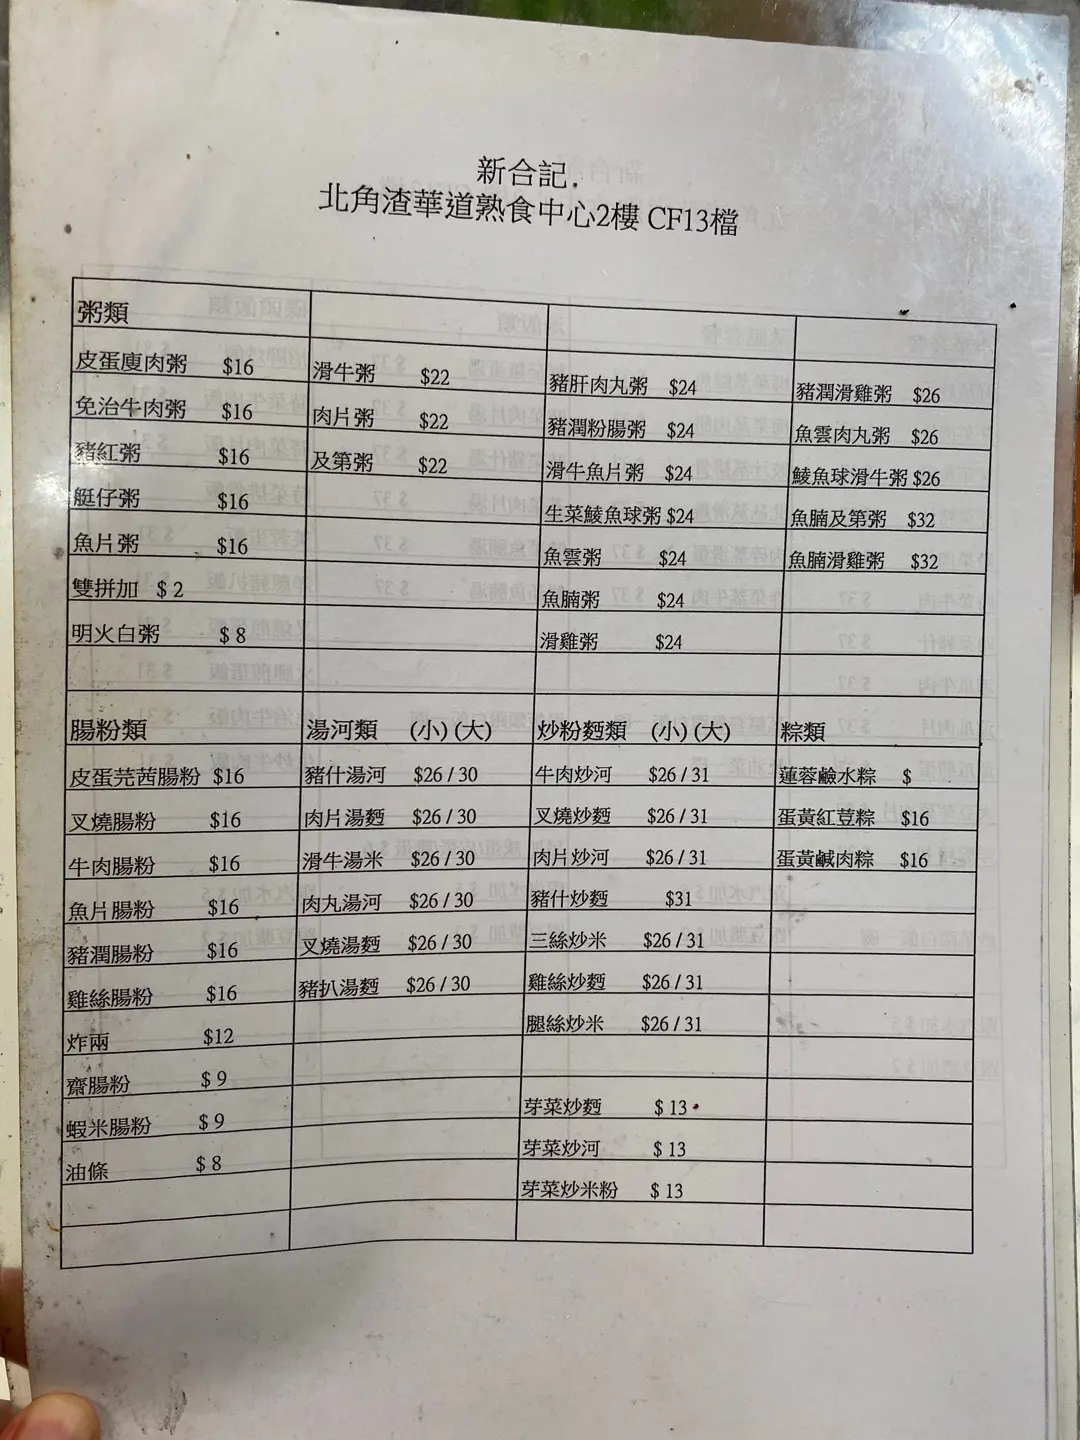 新合記.
北角渣華道熟食中心2樓 CF13檔
粥類
皮蛋廋肉粥 $16 滑牛粥 $22 豬肝肉丸粥 $24 豬潤滑雞粥 $26
免治牛肉粥 $16 肉片粥 $22 豬潤粉腸粥 $24 魚雲肉丸粥 $26
豬紅粥 $16 及第粥 $22 滑牛魚片粥 $24 鯪魚球滑牛粥 $26
艇仔粥 $16 生菜鯪魚球粥 $24 魚腩及第粥 $32
魚片粥 $16 魚雲粥 $24 魚腩滑雞粥 $32
雙拼加 $ 2 魚腩粥 $24
明火白粥 $ 8 滑雞粥 $24
腸粉類 湯河類 (小) (大) 炒粉麵類 (小) (大) 粽類
皮蛋芫茜腸粉 $16 豬什湯河 $26 / 30 牛肉炒河 $26 / 31 蓮蓉鹼水粽 $
叉燒腸粉 $16 肉片湯麵 $26 / 30 叉燒炒麵 $26 / 31 蛋黃紅荳粽 $16
牛肉腸粉 $16 滑牛湯米 $26 / 30 肉片炒河 $26 / 31 蛋黃鹹肉粽 $16
魚片腸粉 $16 肉丸湯河 $26 / 30 豬什炒麵 $31
豬潤腸粉 $16 叉燒湯麵 $26 / 30 三絲炒米 $26 / 31
雞絲腸粉 $16 豬扒湯麵 $26 / 30 雞絲炒麵 $26 / 31
炸兩 $12 腿絲炒米 $26 / 31
齋腸粉 $ 9
蝦米腸粉 $ 9 芽菜炒麵 $ 13
油條 $ 8 芽菜炒河 $ 13
芽菜炒米粉 $ 13